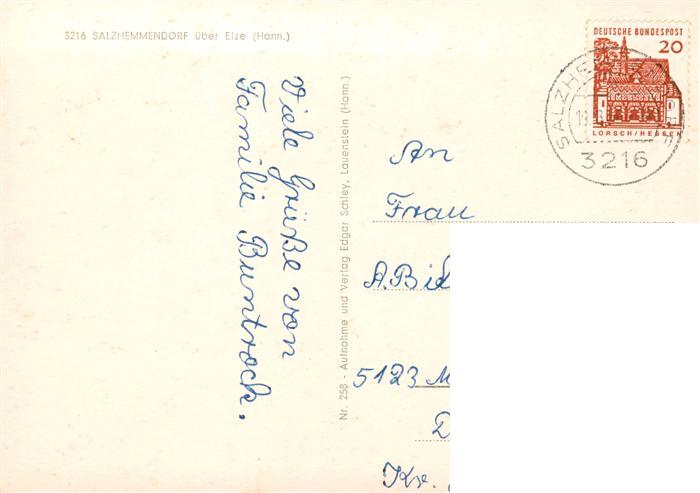 3216 SALZHEMMENDORF über Elze (Hann.)
Viele Grüße von
Familie Buntrock.
Nr. 258 - Aufnahme und Verlag Edgar Schley, Lauenstein (Hann.)
DEUTSCHE BUNDESPOST
20
LORSCH/HESSEN
3216
An
Frau
A. Bid
5123 M
D
Kr.